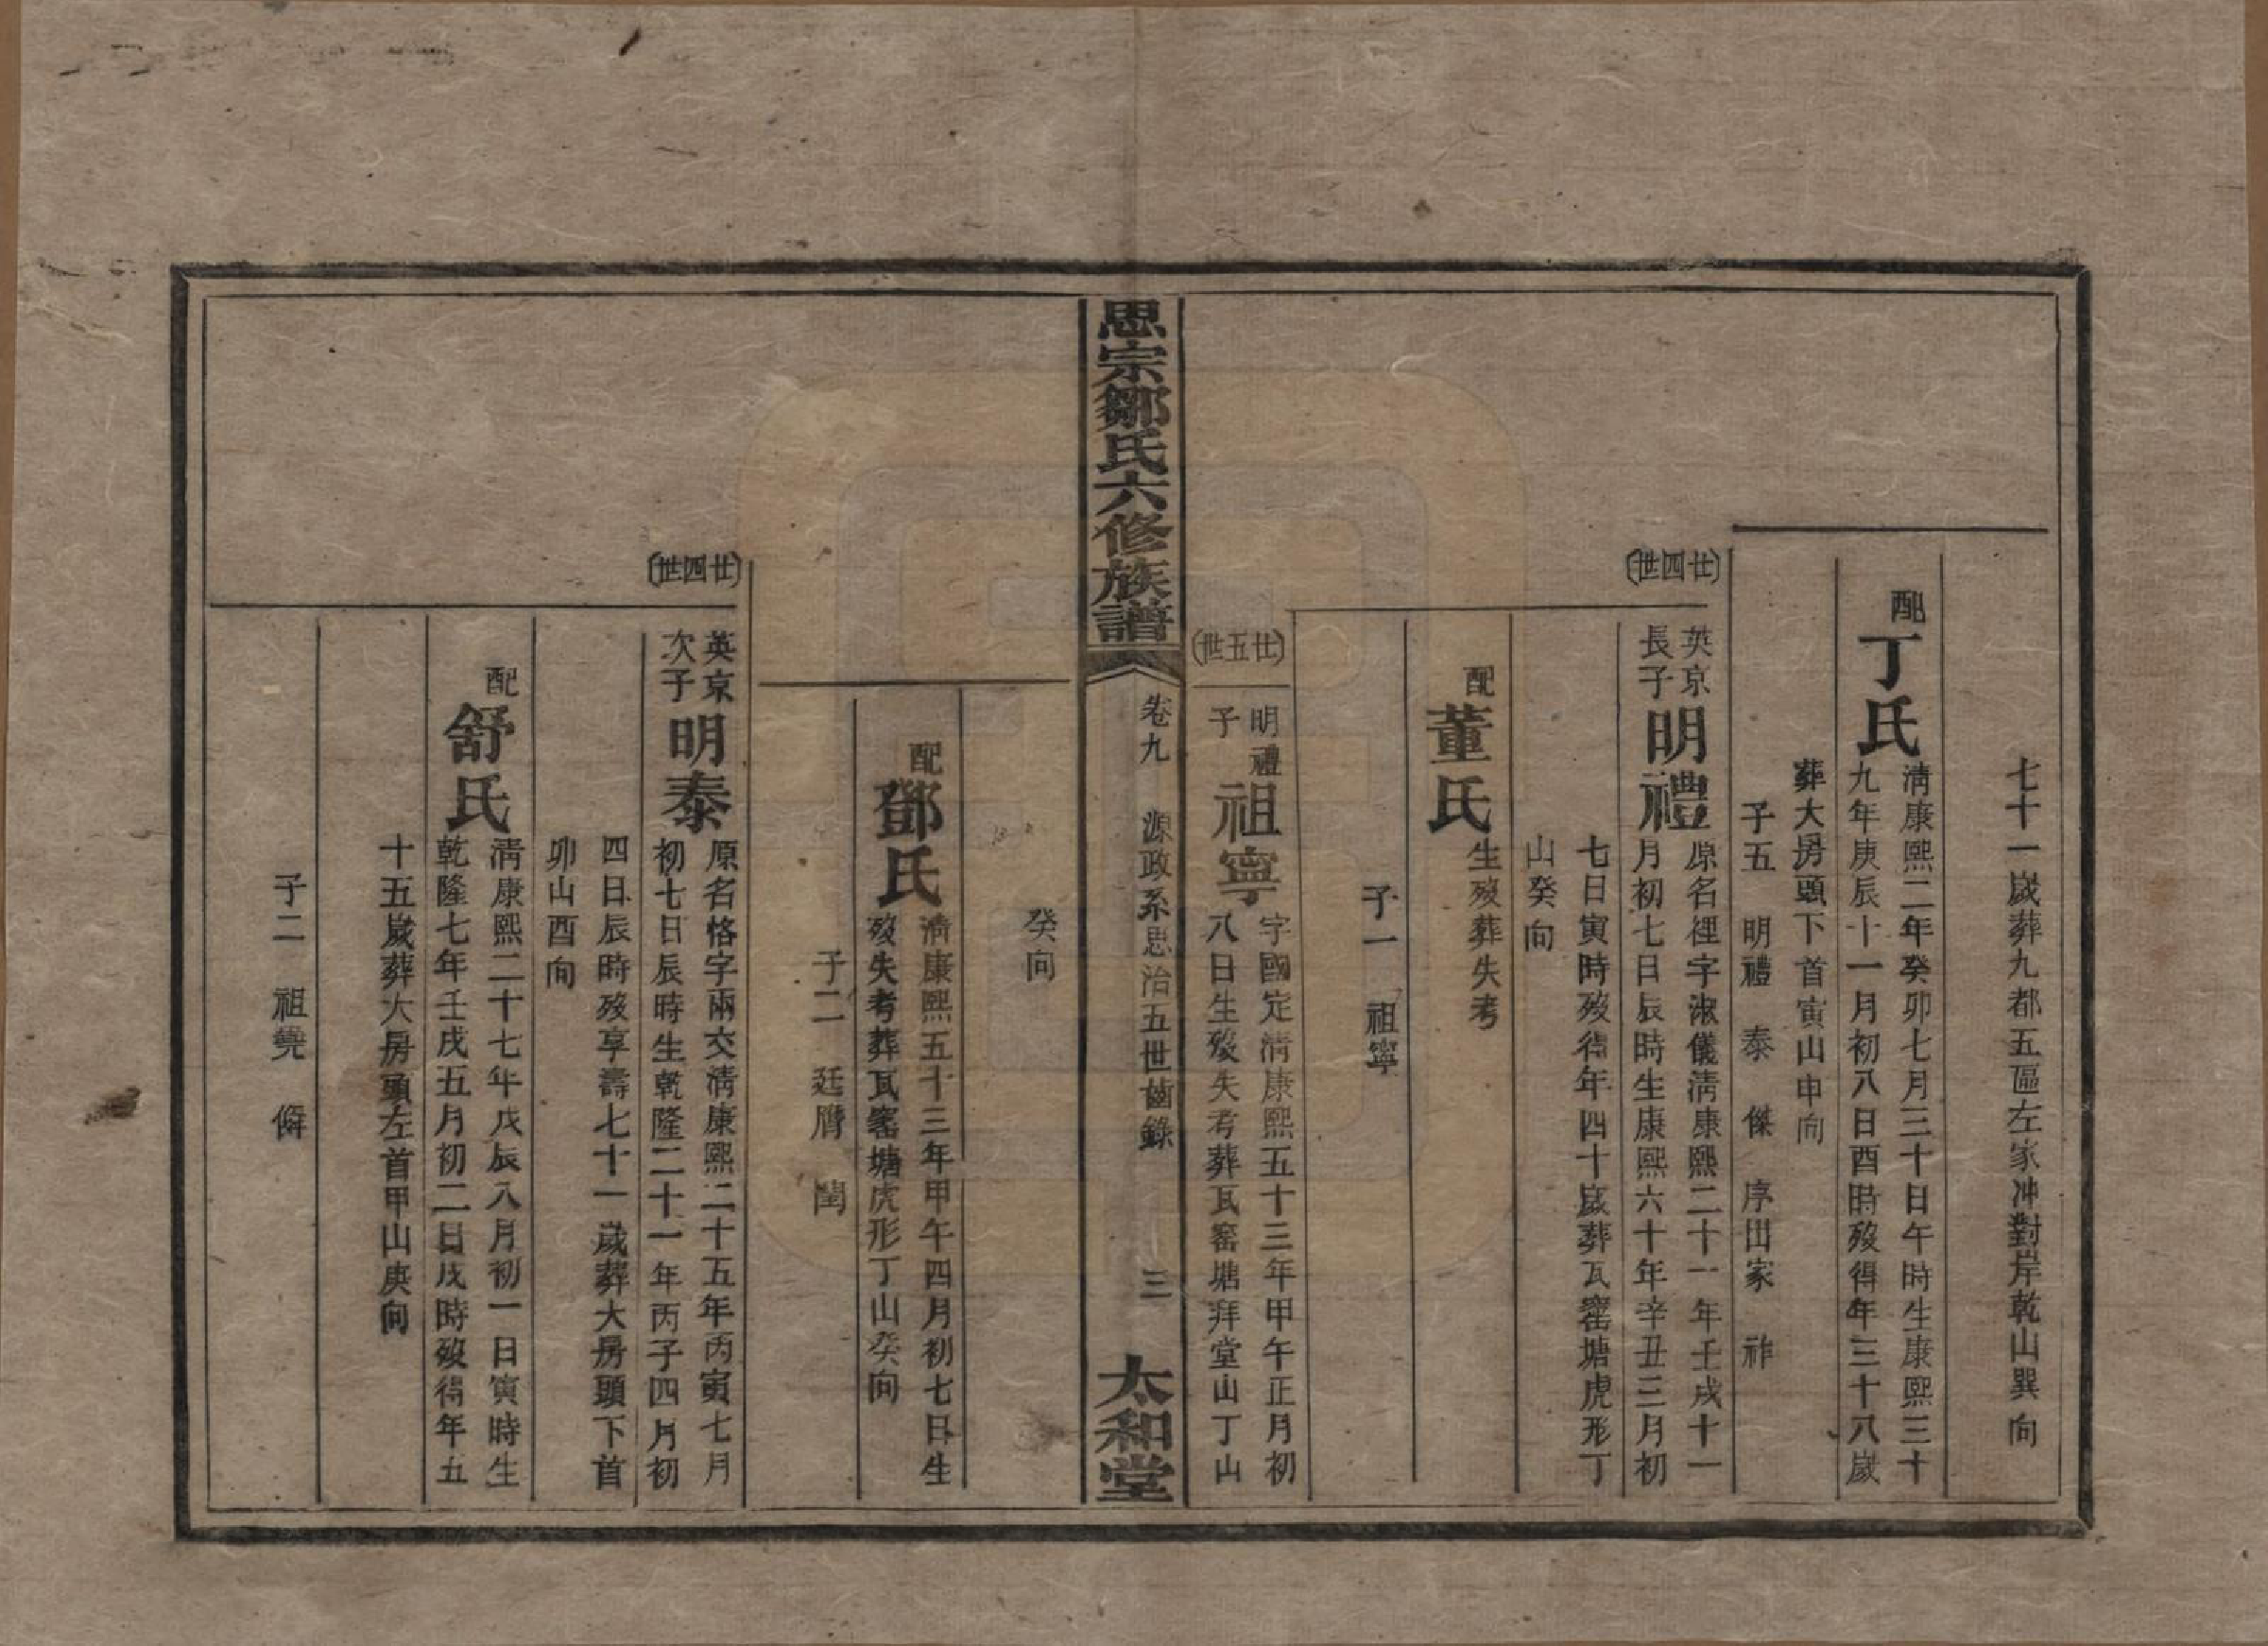 七十一歲葬九都五區左家冲對岸乾山巽向
配丁氏
清康熙二年癸卯七月三十日午時生康熙三十
九年庚辰十一月初八日酉時歿得年三十八歲
葬大房頭下首寅山申向
子五 明禮 泰 傑 序出家 祚
廿四世
英京
長子
明禮
原名裡字淑儀清康熙二十一年壬戌十一
月初七日辰時生康熙六十年辛丑三月初
七日寅時歿得年四十歲葬瓦窰塘虎形丁
山癸向
配董氏
生歿葬失考
子一 祖寧
廿五世
明禮
子
祖寧
字國定清康熙五十三年甲午正月初
八日生歿失考葬瓦窰塘拜堂山丁山
思宗鄒氏六修族譜
卷九 源政系思治五世齒錄
三
太和堂
癸向
配鄧氏
清康熙五十三年甲午四月初七日生
歿失考葬瓦窰塘虎形丁山癸向
子二 廷膺 閏
廿四世
英京
次子
明泰
原名恪字兩交清康熙二十五年丙寅七月
初七日辰時生乾隆二十一年丙子四月初
四日辰時歿享壽七十一歲葬大房頭下首
卯山酉向
配舒氏
清康熙二十七年戊辰八月初一日寅時生
乾隆七年壬戌五月初二日戌時歿得年五
十五歲葬大房頭左首甲山庚向
子二 祖堯 僻